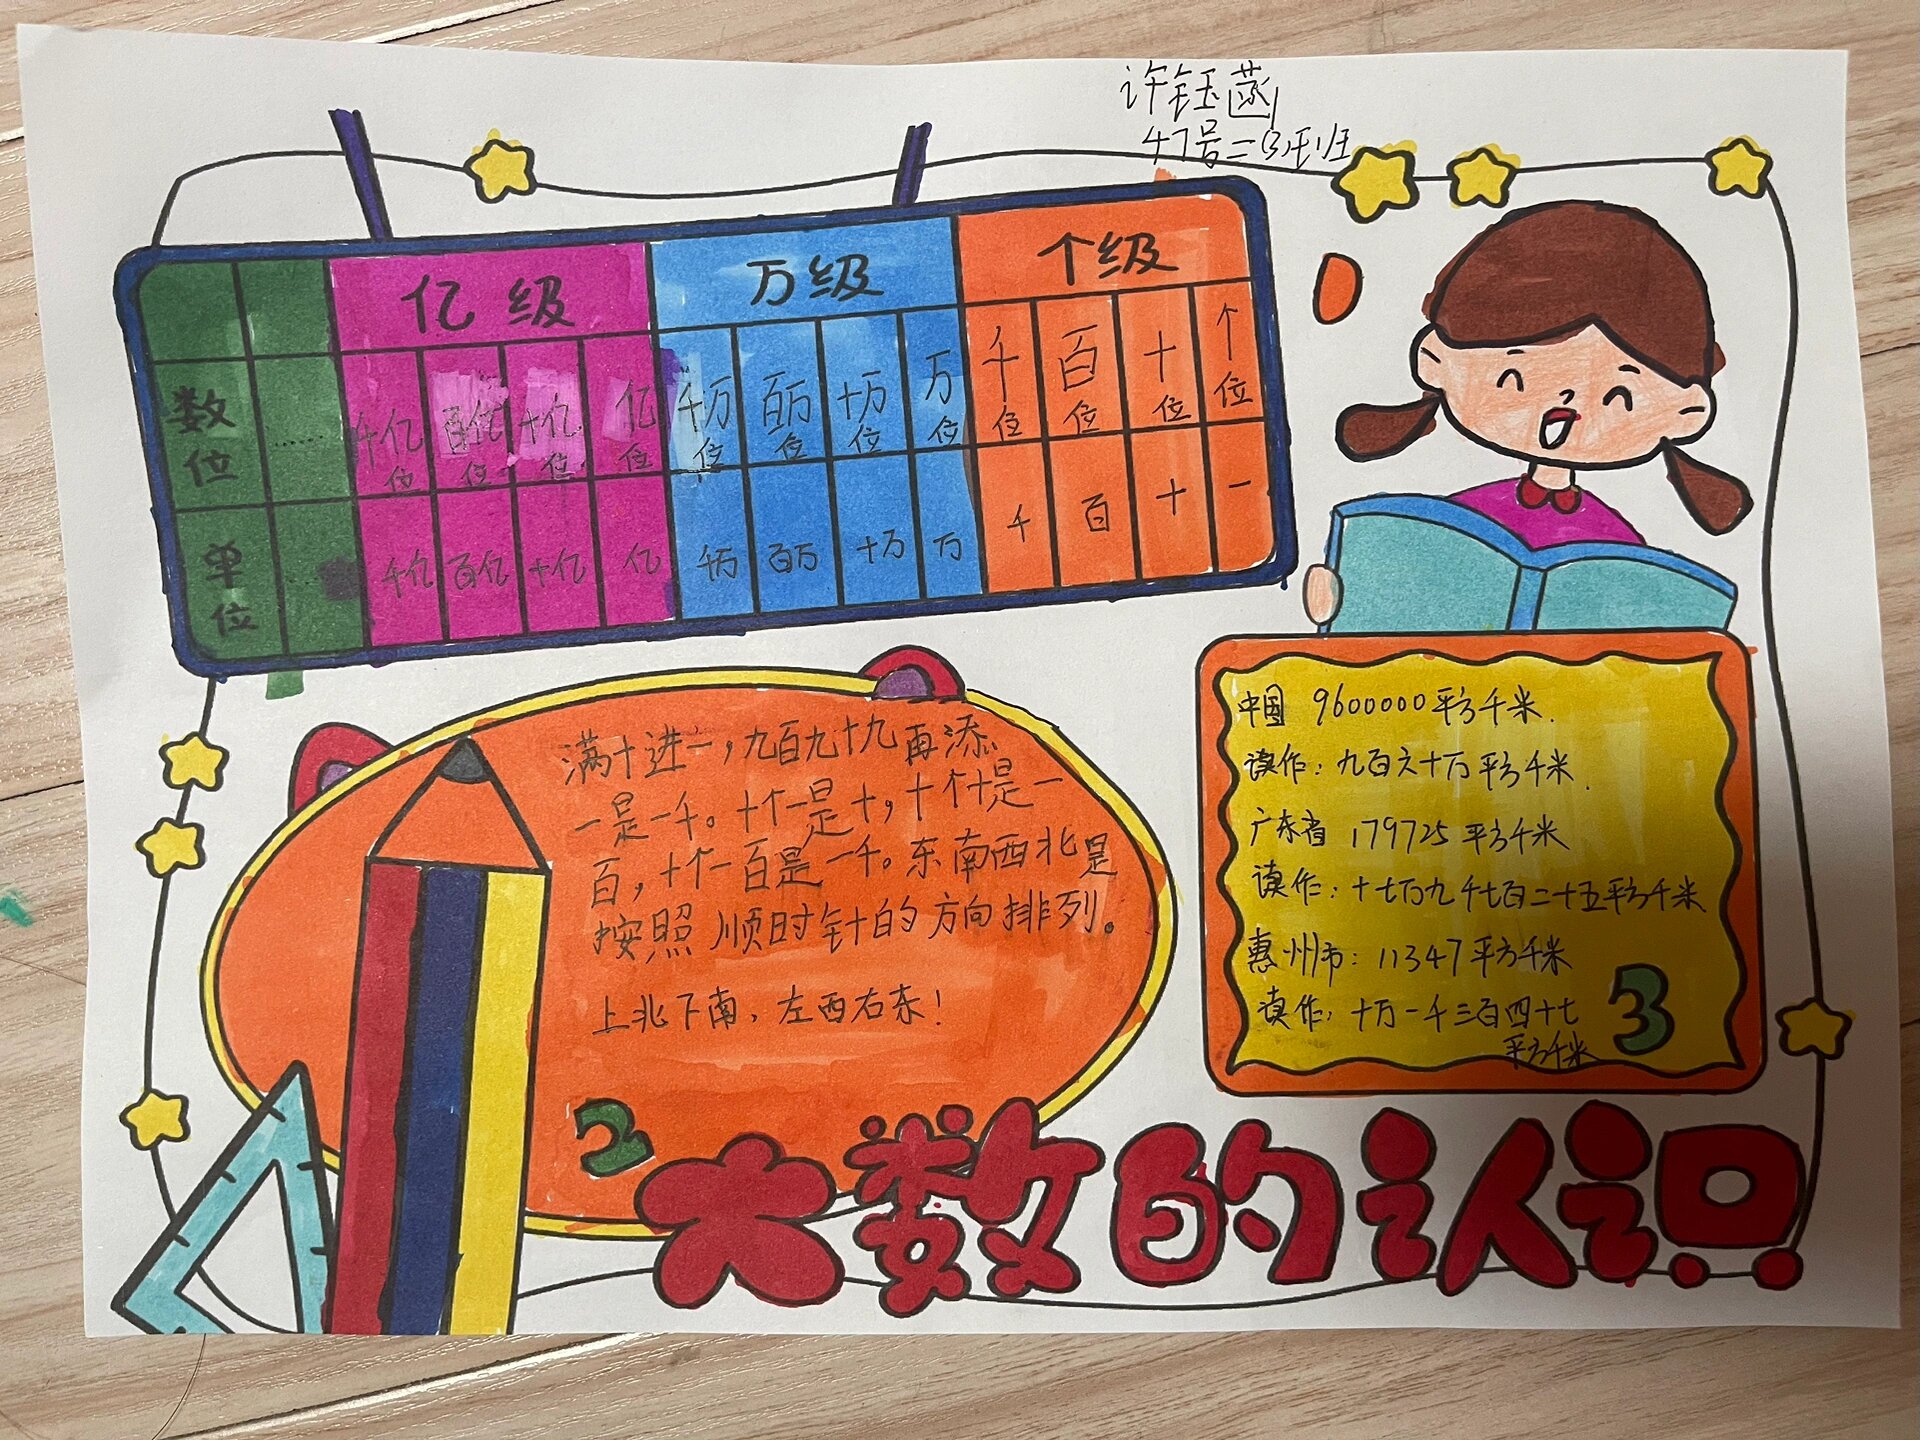 许钰菡
47号二(3)班
亿级 万级 个级
数位 …… 千亿位 百亿位 十亿位 亿位 千万位 百万位 十万位 万位 千位 百位 十位 个位
单位 …… 千亿 百亿 十亿 亿 千万 百万 十万 万 千 百 十 一
满十进一,九百九十九再添
一是一千。十个一是十,十个十是一
百,十个一百是一千。东南西北是
按照顺时针的方向排列。
上北下南,左西右东!
中国 9600000平方千米.
读作:九百六十万平方千米.
广东省 179725平方千米
读作:十七万九千七百二十五平方千米
惠州市:11347平方千米
读作,十万一千三百四十七
平方千米
3
大数的认识